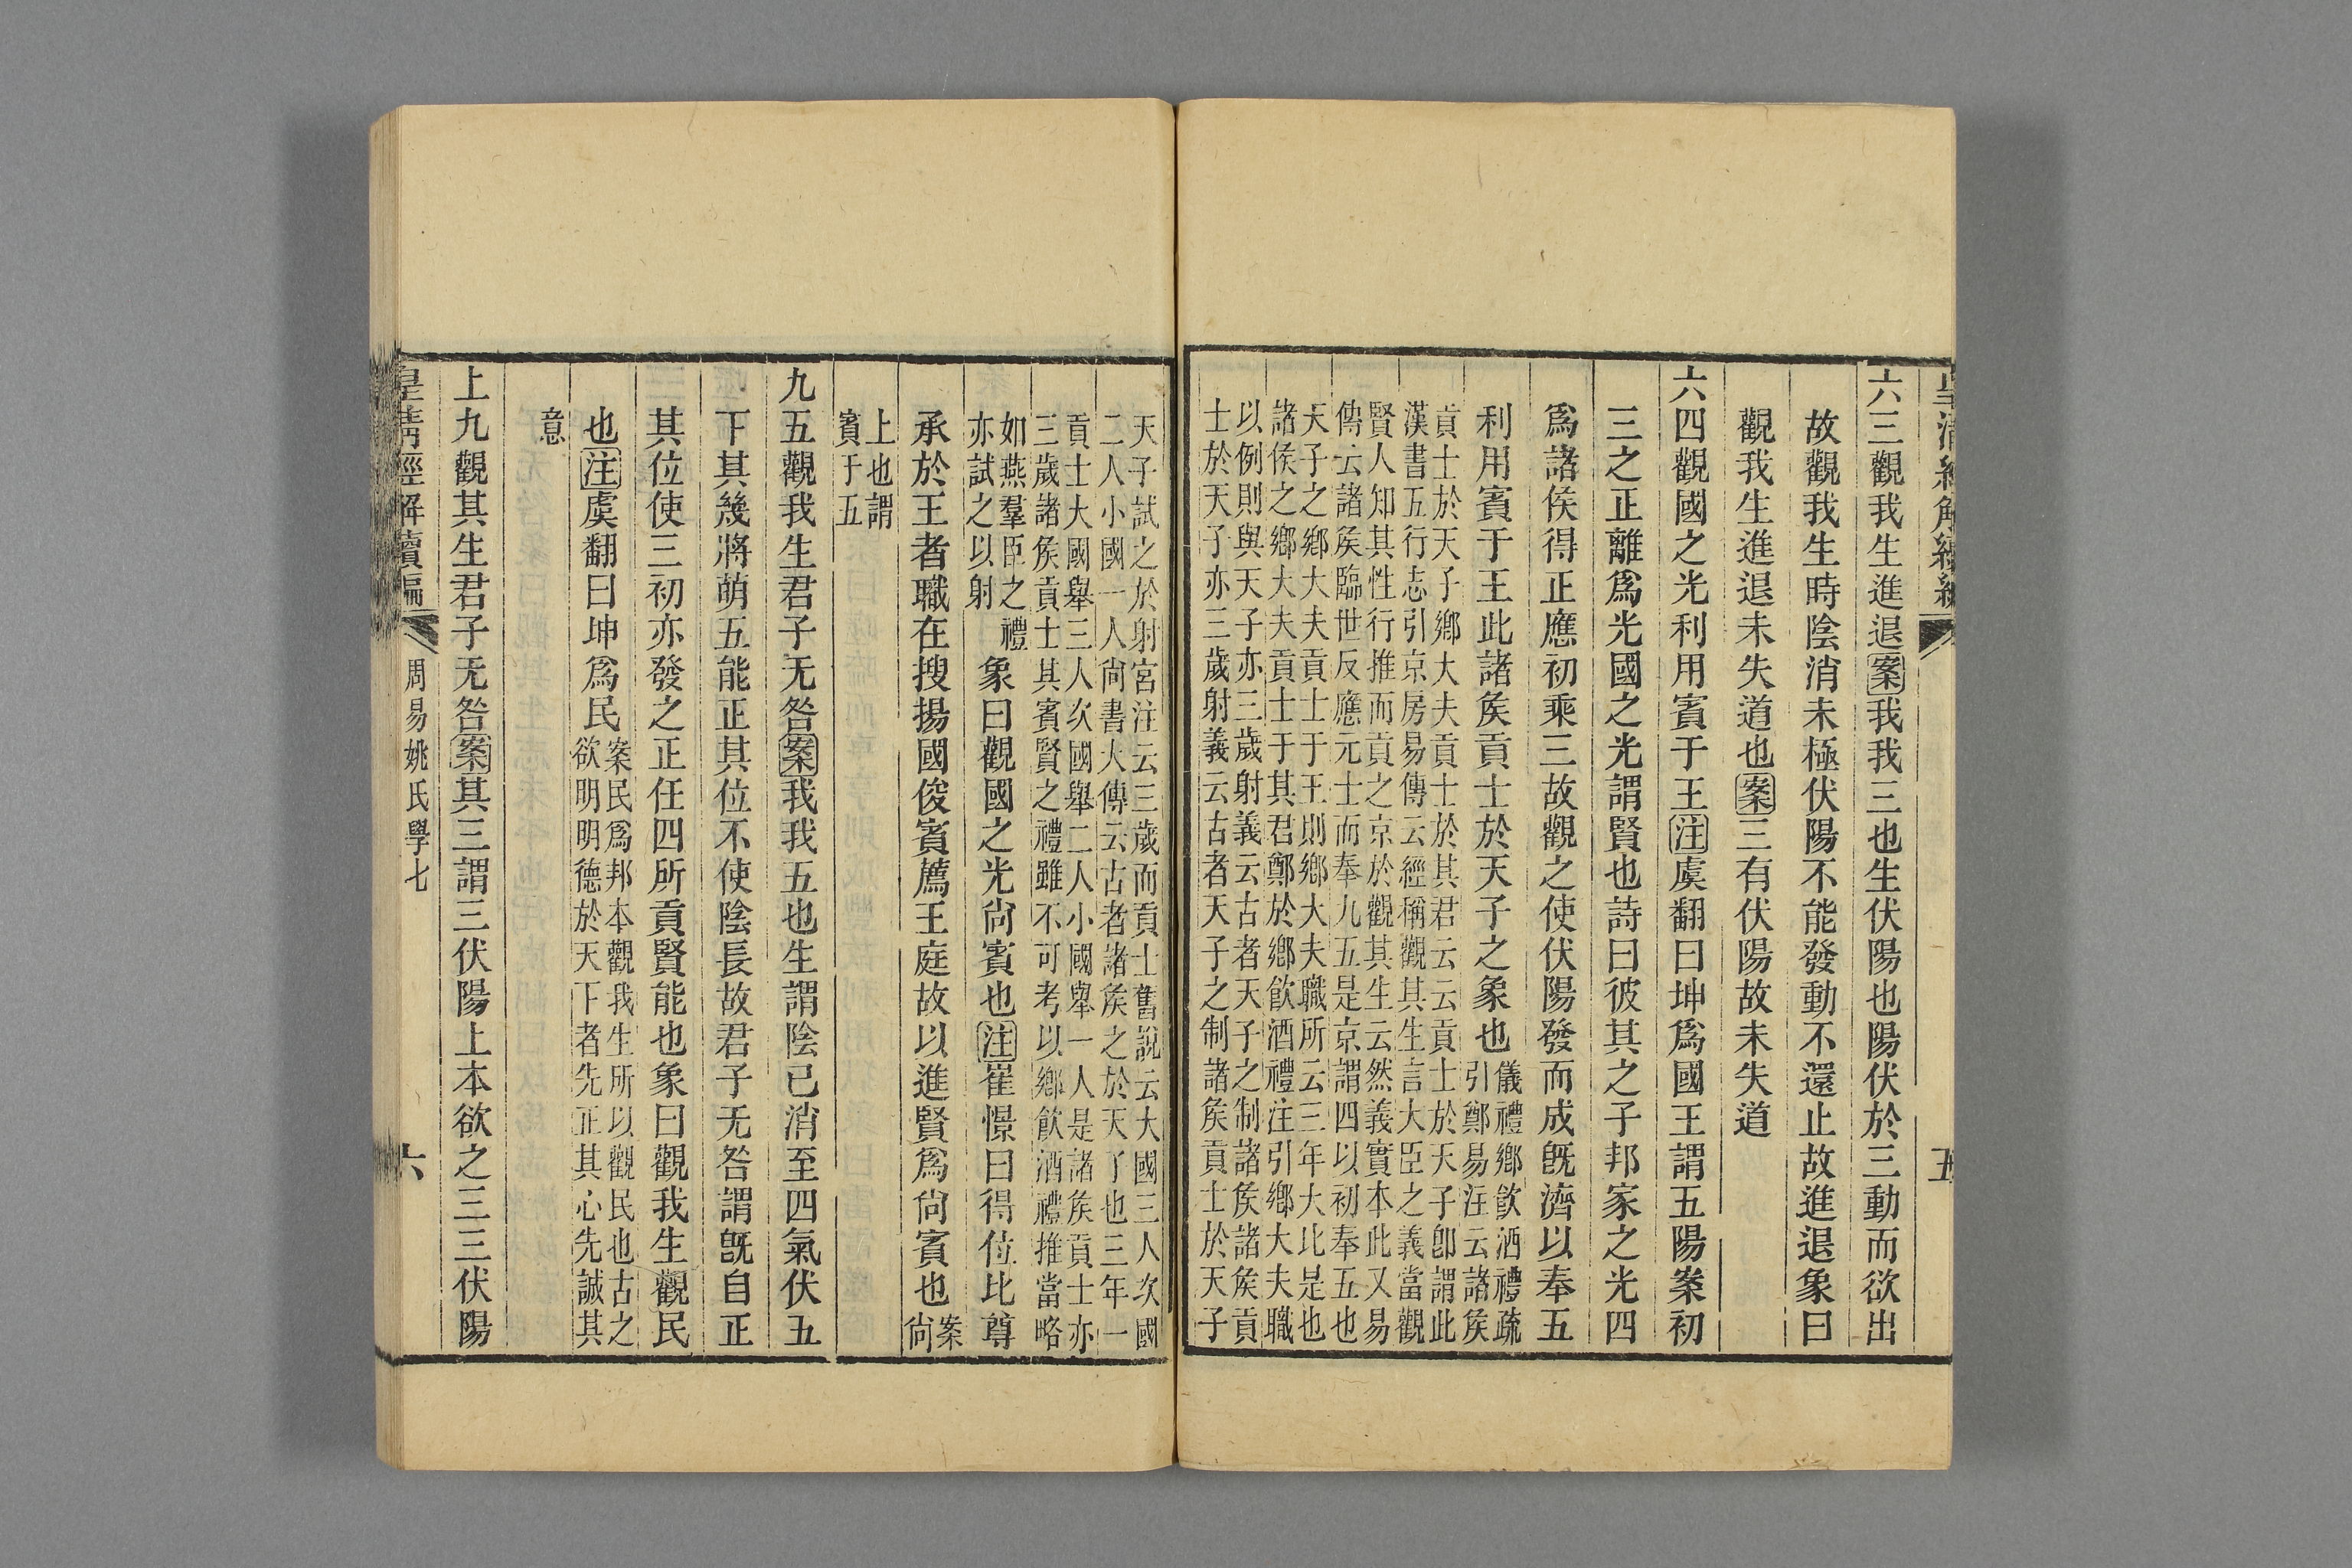 皇清經解續編
五
六三觀我生進退案我我三也生伏陽也陽伏於三動而欲出
故觀我生時陰消未極伏陽不能發動不還止故進退象曰
觀我生進退未失道也案三有伏陽故未失道
六四觀國之光利用賓于王注虞翻曰坤爲國王謂五陽案初
三之正離爲光國之光謂賢也詩曰彼其之子邦家之光四
爲諸侯得正應初乘三故觀之使伏陽發而成旣濟以奉五
利用賓于王此諸矦貢士於天子之象也儀禮鄉飲酒禮疏
引鄭易注云諸矦
貢士於天子鄉大夫貢士於其君云云貢士於天子卽謂此
漢書五行志引京房易傳云經稱觀其生言大臣之義當觀
賢人知其性行推而貢之京於觀其生云然義實本此又易
傳云諸矦臨世反應元士而奉九五是京謂四以初奉五也
天子之鄉大夫貢士于王則鄉大夫職所云三年大比是也
諸侯之鄉大夫貢士于其君鄭於鄉飲酒禮注引鄉大夫職
以例則與天子亦三歲射義云古者天子之制諸矦諸矦貢
士於天子亦三歲射義云古者天子之制諸矦貢士於天子
天子試之於射宮注云三歲而貢士舊說云大國三人次國
二人小國一人尙書大傳云古者諸矦之於天子也三年一
貢士大國舉三人次國舉二人小國舉一人是諸矦貢士亦
三歲諸矦貢士其賓賢之禮雖不可考以鄉飲酒禮推當略
如燕羣臣之禮
亦試之以射
象曰觀國之光尙賓也注崔憬曰得位比尊
承於王者職在搜揚國俊賓薦王庭故以進賢爲尙賓也案
尙
上也謂
賓于五
九五觀我生君子无咎案我我五也生謂陰已消至四氣伏五
下其幾將萌五能正其位不使陰長故君子无咎謂旣自正
其位使三初亦發之正任四所貢賢能也象曰觀我生觀民
也注虞翻曰坤爲民案民爲邦本觀我生所以觀民也古之
欲明明德於天下者先正其心先誠其
意
上九觀其生君子无咎案其三謂三伏陽上本欲之三三伏陽
皇清經解續編
周易姚氏學七
六